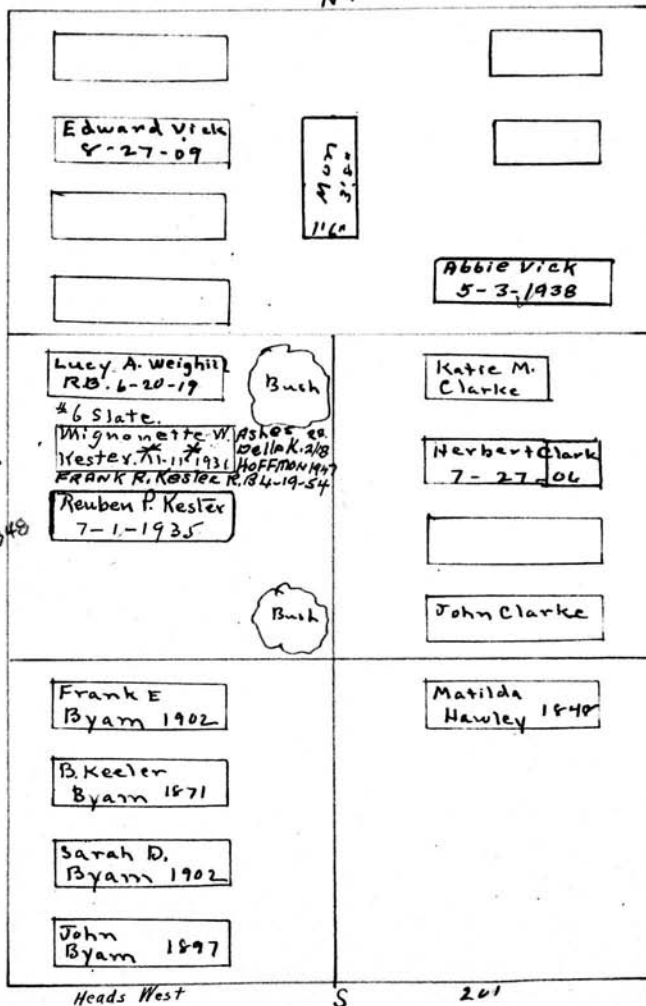 N
Edward Vick
8-27-09
Mon
Abbie Vick
5-3-1938
Lucy A. Weighill
R.B. 6-20-19
#6 Slate.
Mignonette W.
Kester. 11-11-1931
Ashes
Della K.
HOFFMAN 1947
FRANK R. KESTER R.B 4-19-54
Reuben P. Kester
7-1-1935
48
Bush
Bush
Katie M.
Clarke
Herbert Clark
7-27-06
John Clarke
Frank E
Byam 1902
B. Keeler
Byam 1871
Sarah D.
Byam 1902
John
Byam 1897
Matilda
Hawley 1848
Heads West
S
201